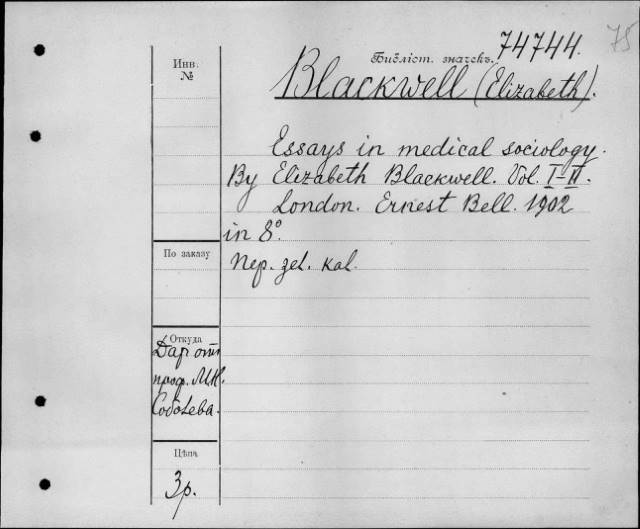 75
74744.
Библіот. значекъ.
Blackwell (Elizabeth).
Инв.
№
Essays in medical sociology.
By Elizabeth Blackwell. Vol. I-II.
London. Ernest Bell. 1902
in 8°.
По заказу
Пер. zel. kal.
Откуда
Дар отъ
проф. М.Н.
Соболева.
Цѣна
3р.